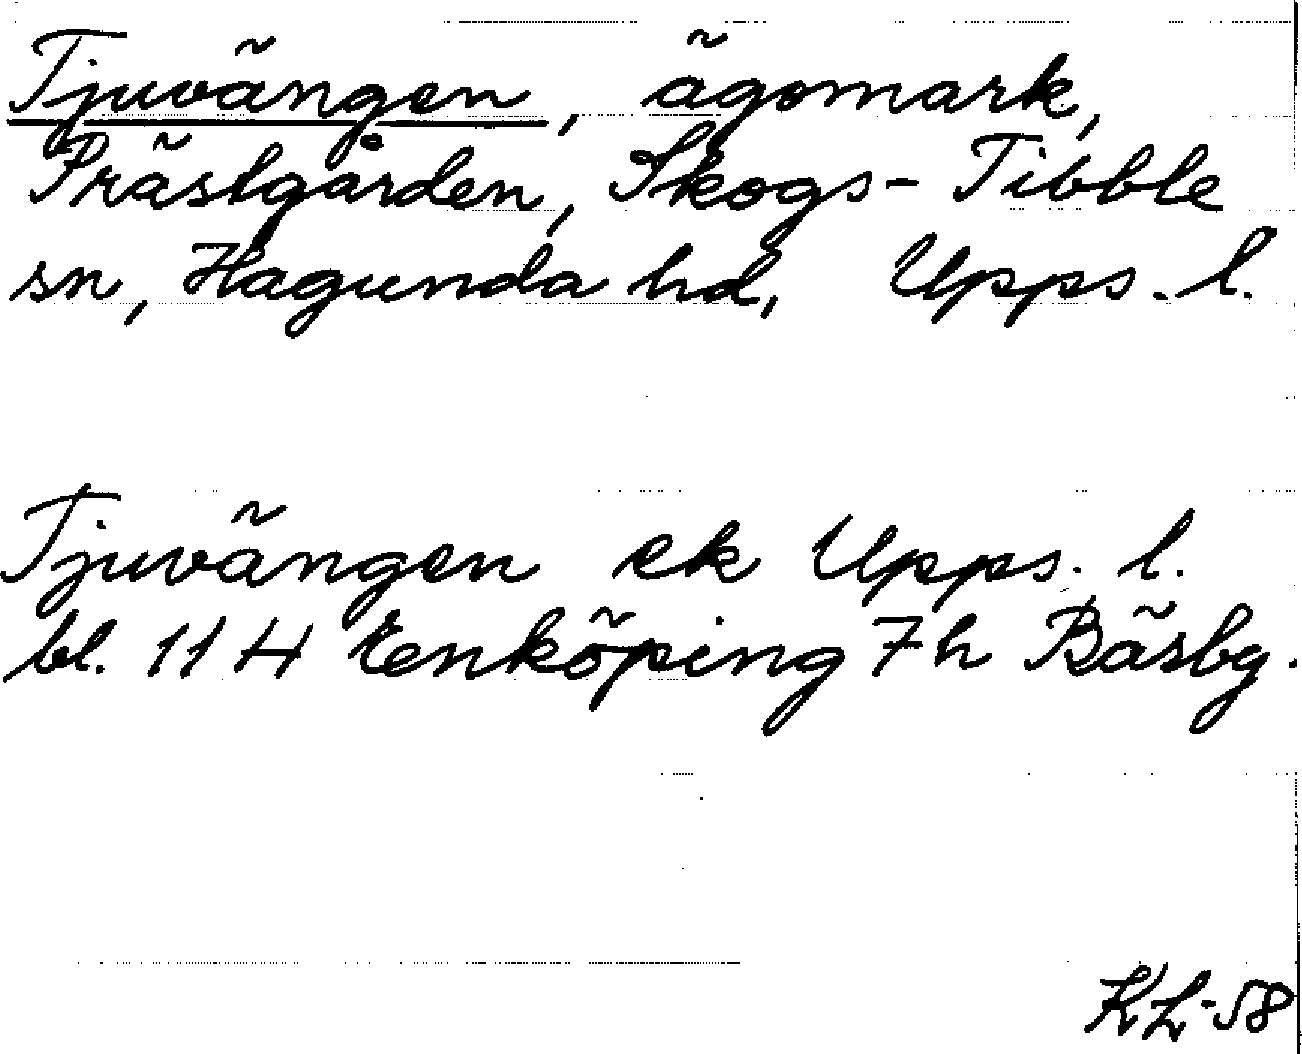 Tjuvängen, ägomark,
Prästgården, Skogs-Tibble
sn, Hagunda hd, Upps. l.
Tjuvängen ek Upps. l.
bl. 11 H Enköping 7h Bäsby.
KL-58